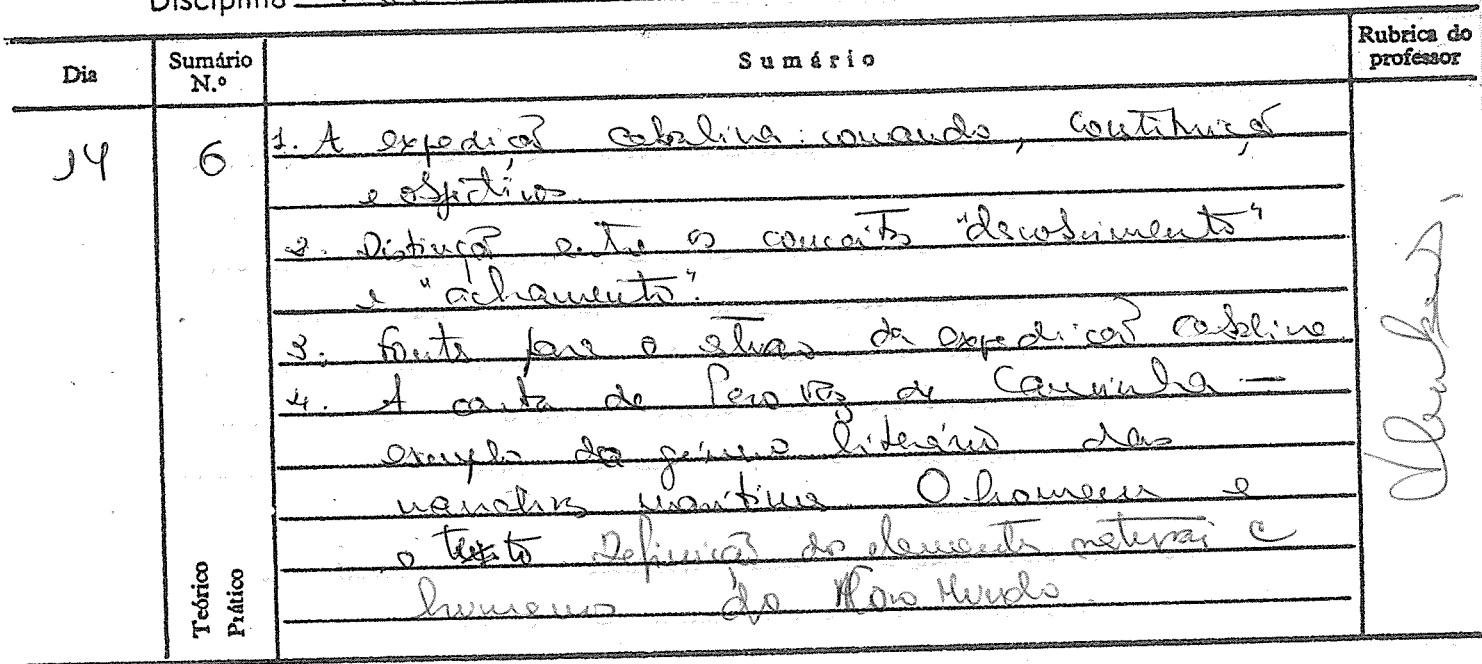 Disciplina
Dia
Sumário N.º
Sumário
Rubrica do professor
14
6
1. A expedição cabralina: comando, constituição
e objectivos.
2. Distinção entre os conceitos "descobrimento"
e "achamento".
3. Fontes para o estudo da expedição cabralina
4. A carta de Pero Vaz de Caminha —
exemplo do género literário das
narrativas marítimas. O homem e
o texto Definição dos elementos naturais e
humanos do Novo Mundo.
Teórico
Prático